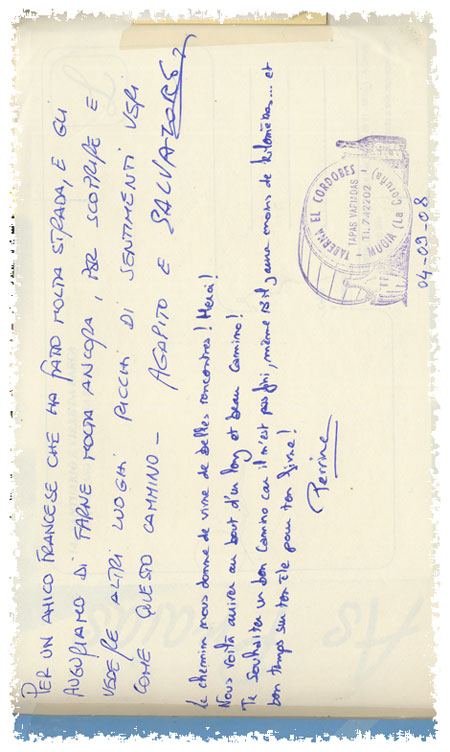 PER UN AMICO FRANCESE CHE HA FATTO MOLTA STRADA, E GLI
AUGURIAMO DI FARNE MOLTA ANCORA, PER SCOPRIRE E
VEDERE ALTRI LUOGHI RICCHI DI SENTIMENTI VERI
COME QUESTO CAMMINO - AGAPITO E SALVATORE
Le chemin nous donne de vivre de belles rencontres! Merci!
Nous voilà arrivés au bout d'un long et beau Camino!
Te souhaiter un bon Camino car il n'est pas fini, même s'il y aura moins de kilomètres... et
bon temps sur ton île pour ton livre!
Perrine
TABERNA EL CORDOBES
TAPAS VARIADAS
Tl. 742202
MUGIA (La Coruña)
04-09-08